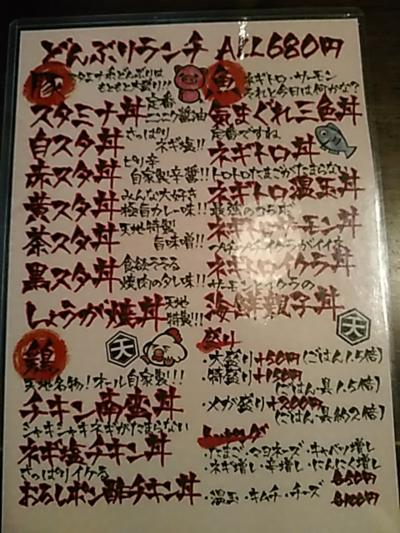 どんぶりランチ ALL680円
豚
もともと大盛り!!
スタミナ丼 定番 ニンニク醤油
白スタ丼 さっぱり ネギ塩!!
赤スタ丼 ピリ辛 自家製辛醤!!
黄スタ丼 みんな大好き 極旨カレー味!!
茶スタ丼 天地特製 旨味噌!!
黒スタ丼 食欲そそる 焼肉のタレ味!!
しょうが焼丼 天地特製!!
鶏
天地名物!オール自家製!!!
チキン南蛮丼
シャキシャキネギがたまらない
ネギ塩チキン丼
さっぱりイケる
おろしポン酢チキン丼
魚
ネギトロ・サーモン
それと今日は何かな?
気まぐれ三色丼
定番ですね
ネギトロ丼
トロトロたまごがたまらない
ネギトロ温玉丼
ネギトロサーモン丼
ネギトロイクラ丼
サーモンとイクラの
海鮮親子丼
天
盛り
・大盛り+50円(ごはん1.5倍)
・特盛り+150円
(ごはん・具1.5倍)
・メガ盛り+200円
(ごはん・具約2倍)
トッピング
・たまご・マヨネーズ・キャベツ増し
・ネギ増し・辛増し・にんにく増し
各50円
・温玉・キムチ・チーズ
各100円